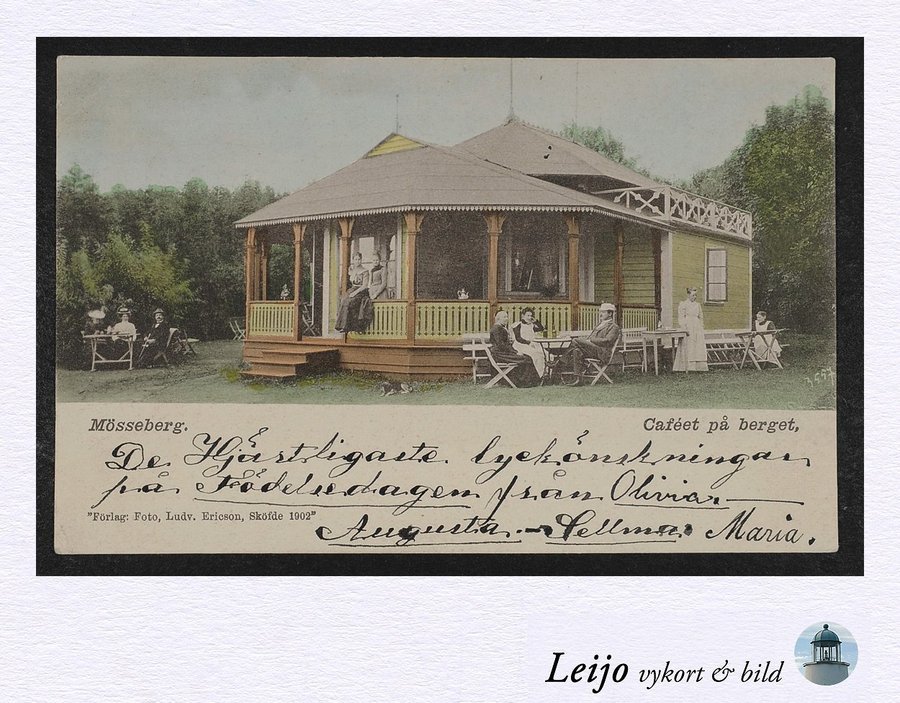 3597
Mösseberg. Caféet på berget,
De Hjärtligaste lyckönskningar
på Födelsedagen från Olivia
"Förlag: Foto, Ludv. Ericson, Sköfde 1902"
Augusta. - Sellma. Maria.
Leijo vykort & bild